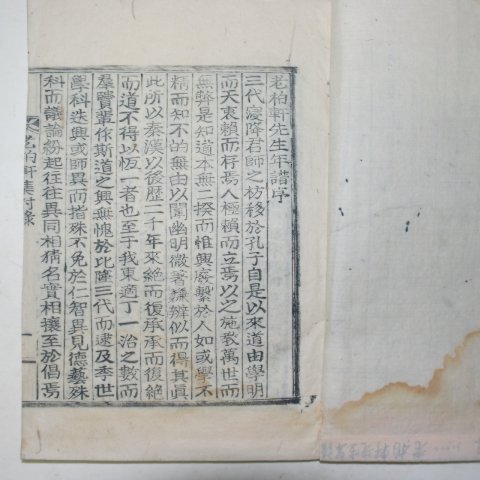 老柏軒先生年譜序
三代寢降君師之枋移於孔子自是以來道由學明
而天衷賴而存焉人極賴而立焉以之施教萬世而
無弊是知道本無二揆而惟興廢繫於人如或學不
精而知不的無由以闡幽明微著嫌辯似而得其眞
此所以秦漢以後歷二千年來絶而復承承而復絶
而道不得以恆一者也至于我東適丁一治之數而
羣賢輩作斯道之興無愧於比隆三代而逮及季世
學科迭興或師異而指殊不免於仁智異見德藝殊
科而議論紛起往往異同相猜名實相攘至於倡焉
老柏軒集附錄
一